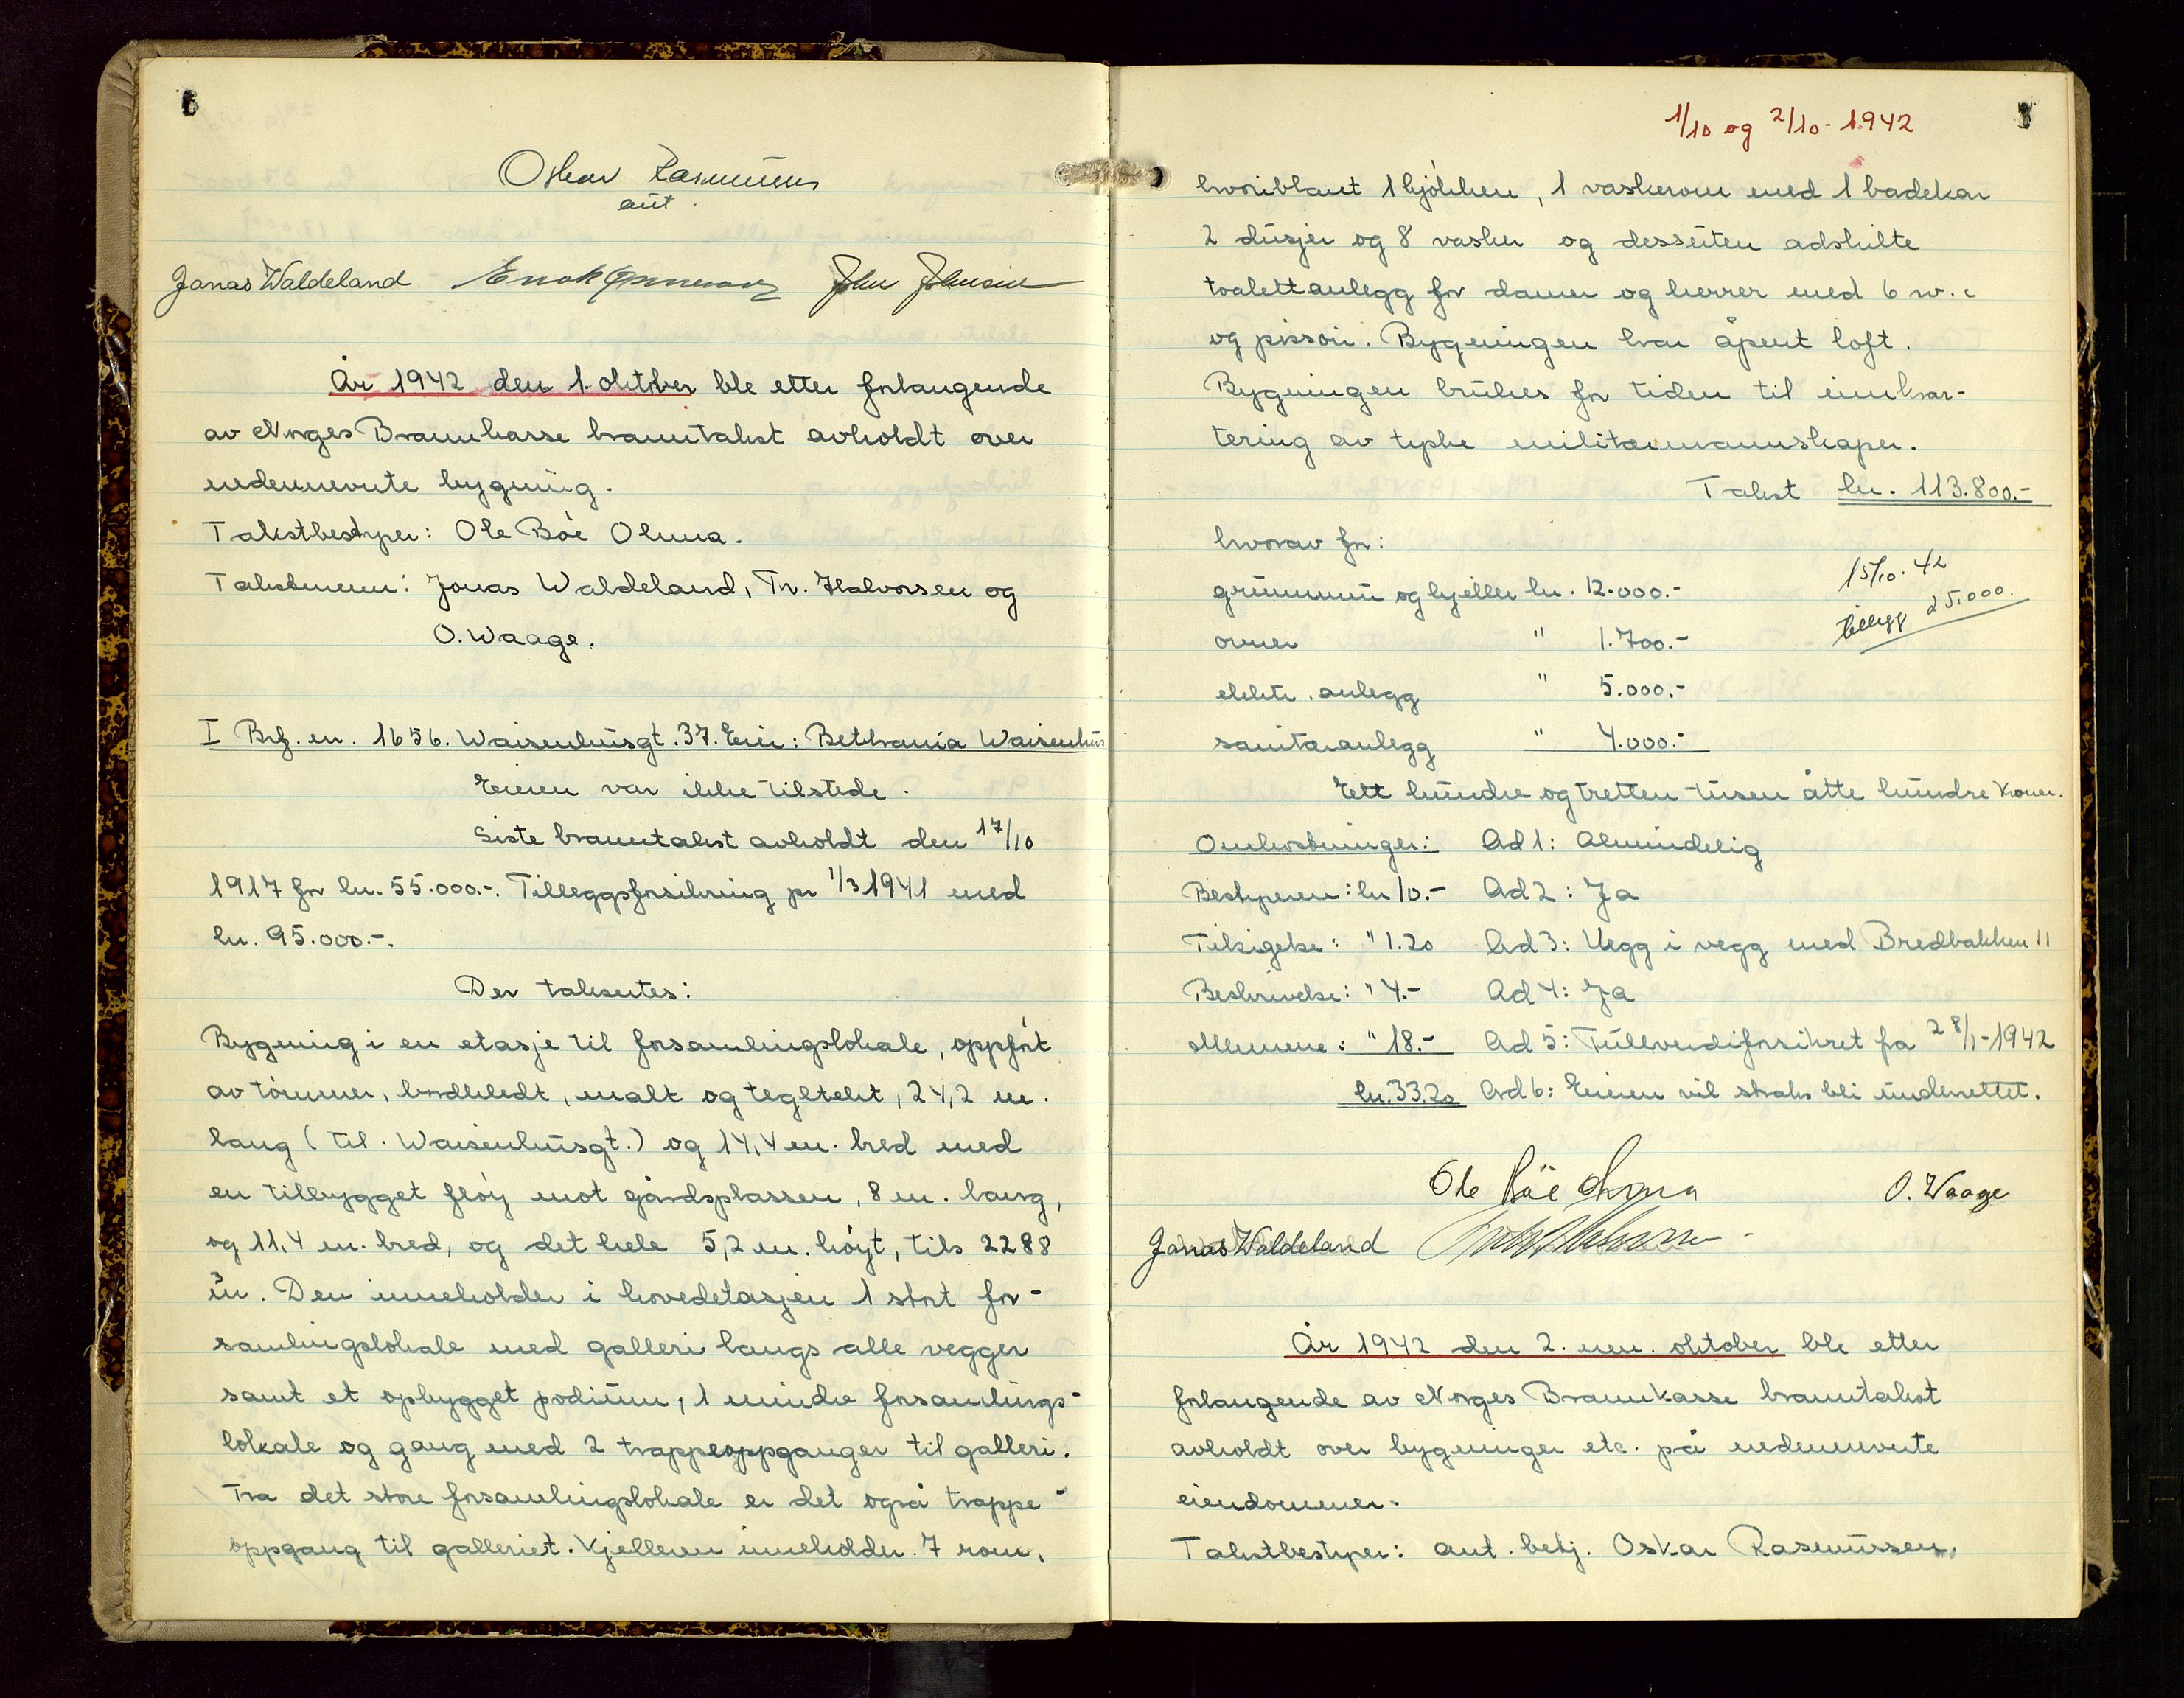 6
Oskar Rasmussen
aut.
Jonas Waldeland John Johnsen
År 1942 den 1. oktober ble etter forlangende
av Norges Brannkasse branntakst avholdt over
nedennevnte bygning.
Takstbestyrer: Ole Böe Olmea.
Takstmenn: Jonas Waldeland, Tr. Halvorsen og
O. Waage.
I Brf. nr. 1656. Waisenhusgt. 37. Eier: Bethania Waisenhus
Eieren var ikke tilstede.
Siste branntakst avholdt den 17/10
1917 for kr. 55.000.-. Tilleggsforsikring pr 1/3 1941 med
kr. 95.000.-.
Der takseres:
Bygning i en etasje til forsamlingslokale, oppført
av tömmer, bordkledt, malt og tegltekt, 24,2 m.
lang (til. Waisenhusgt.) og 14,4 m. bred med
en tilbygget flöy mot gårdsplassen, 8 m. lang,
og 11,4 m. bred, og det hele 5,2 m. höyt, tils 2288
m³. Den inneholder i hovedetasjen 1 stort for-
samlingslokale med galleri langs alle vegger
samt et opbygget podium, 1 mindre forsamlings-
lokale og gang med 2 trappeoppganger til galleri.
Fra det store forsamlingslokale er det også trappe-
oppgang til galleriet. Kjelleren inneholder 7 rom,
1/10 og 2/10 - 1942
7
hvoriblant 1 kjökken, 1 vaskerom med 1 badekar
2 dusjer og 8 vasker og dessuten adskilte
toalettanlegg for damer og herrer med 6 w.c
og pissoir. Bygningen har åpent loft.
Bygningen brukes for tiden til innkvar-
tering av tyske militærmannskaper.
Takst kr. 113.800.-
hvorav for:
grunnmur og kjeller kr. 12.000.-
15/10. 42
tillegg 25.000.
ovner " 1.700.-
elektr. anlegg " 5.000.-
sanitæranlegg " 4.000.-
Ett hundre og tretten tusen åtte hundre kroner.
Omkostninger: Ad 1: Almindelig
Bestyreren: kr 10.- Ad 2: Ja
Tilsigelse: " 1.20 Ad 3: Vegg i vegg med Bredbakken 11
Beskrivelse: " 4.- Ad 4: Ja
Mennene: " 18.- Ad 5: Fullverdiforsikret fra 28/1 - 1942
kr. 33.20 Ad 6: Eieren vil straks bli underrettet.
Ole Böe O. Waage
Jonas Waldeland
År 1942 den 2. nen. oktober ble etter
forlangende av Norges Brannkasse branntakst
avholdt over bygninger etc. på nedennevnte
eiendommer.
Takstbestyrer: aut. betj. Oskar Rasmussen.